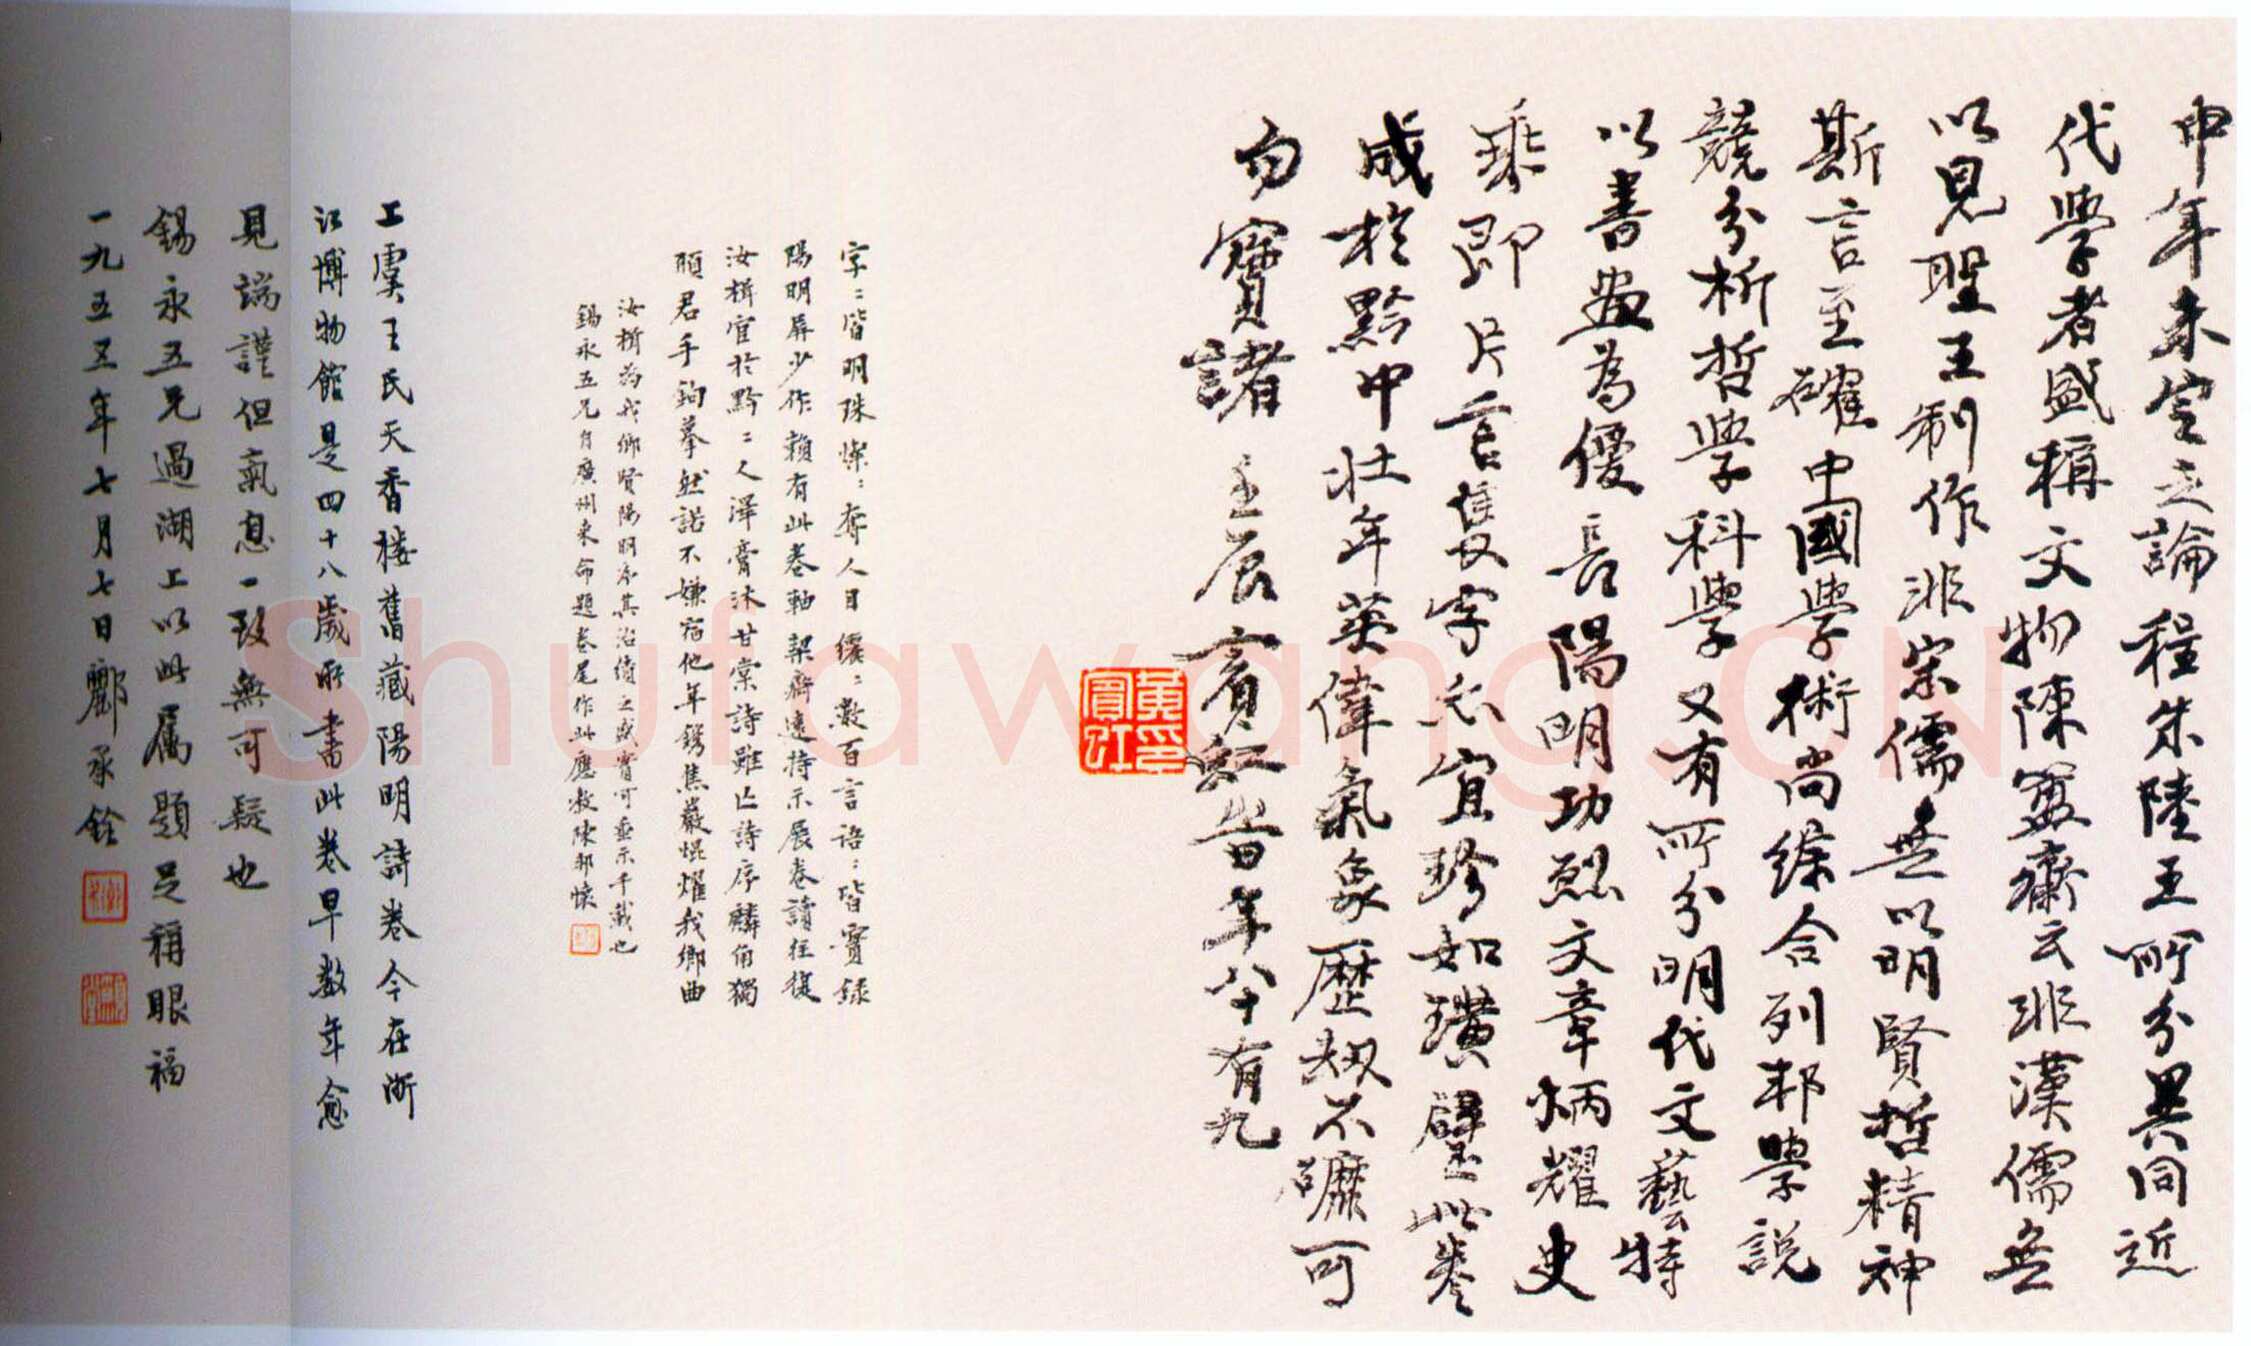 中年未定之論程朱陸王所分異同近
代學者盛稱文物陳蘭齋云非漢儒無
以見聖王制作非宋儒無以明賢哲精神
斯言至確中國學術尚綜合列邦學說
競分析哲學科學又有所分明代文藝特
以書畫為優長陽明功烈文章炳耀史
乘即片言隻字亦宜珍如璜璧此卷
成於黔中壯年英偉氣象歷劫不磨可
勿寶諸 壬辰賓虹昔年八十有九
黃賓虹印
字〻皆明珠燦〻奪人目纚〻數百言語〻皆實錄
陽明屏少作賴有此卷軸絜齋遠持示展卷讀往復
汝楫官於黔〻人澤膏沐甘棠詩雖亡詩序麟角獨
願君手鉤摹然諾不嫌宿他年鐫焦巖焜燿我鄉曲
汝楫為我鄉賢陽明序其治績之盛實可垂示千載也
錫永五兄自廣州來命題卷尾作此應教陳邦懷
上虞王氏天香樓舊藏陽明詩卷今在浙
江博物館是四十八歲所書此卷早數年愈
見端謹但氣息一致無可疑也
錫永五兄過湖上以此屬題足稱眼福
一九五五年七月七日酈承銓
Shufawang.CN